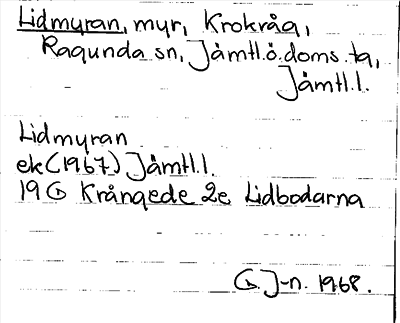 Lidmyran, myr, Krokråg,
Ragunda sn, Jämtl.ö.doms.ta,
Jämtl.l.
Lidmyran
ek (1967) Jämtl.l.
19 G Krångede 2e Lidbodarna
G. J-n. 1968.